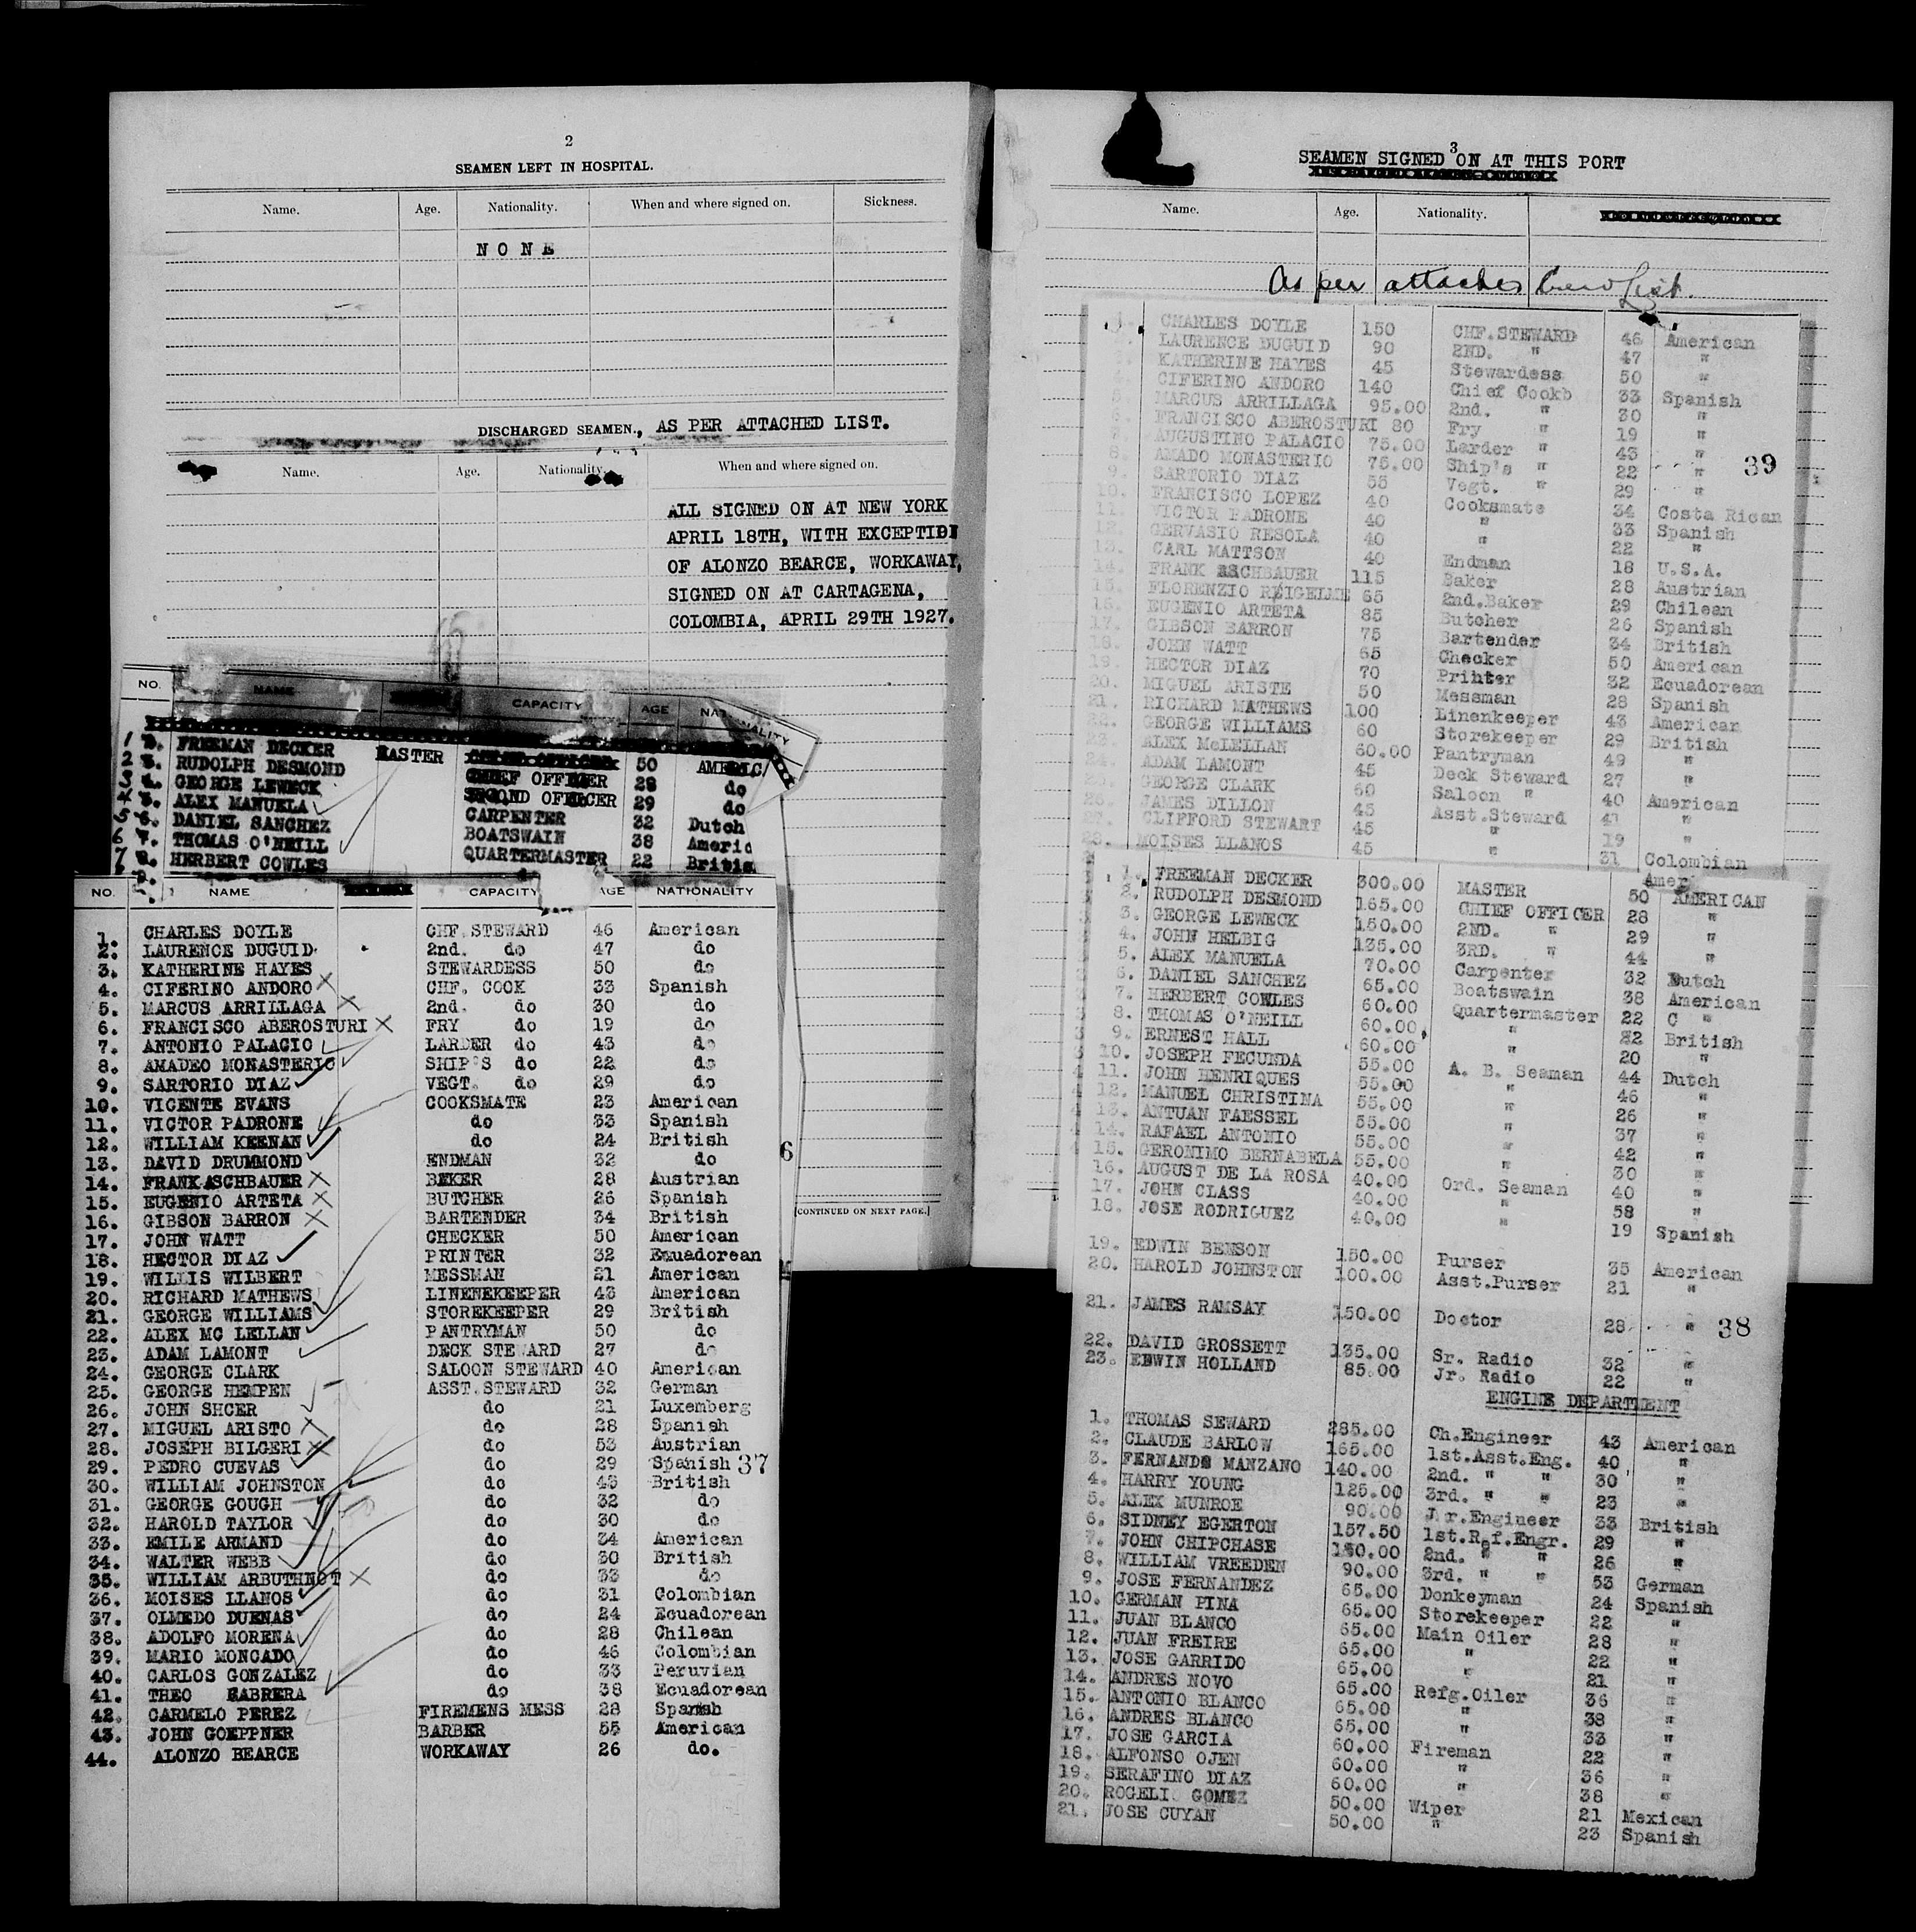 2
SEAMEN LEFT IN HOSPITAL.
Name. Age. Nationality. When and where signed on. Sickness.
NONE
DISCHARGED SEAMEN., AS PER ATTACHED LIST.
Name. Age. Nationality. When and where signed on.
ALL SIGNED ON AT NEW YORK
APRIL 18TH, WITH EXCEPTION
OF ALONZO BEARCE, WORKAWAY,
SIGNED ON AT CARTAGENA,
COLOMBIA, APRIL 29TH 1927.
NO. NAME CAPACITY AGE NATIONALITY
1 FREEMAN DECKER MASTER 50 AMERIC
2 RUDOLPH DESMOND CHIEF OFFICER 28 do
3 GEORGE LEWECK SECOND OFFICER 29 do
4 ALEX MANUELA CARPENTER 32 Dutch
5 DANIEL SANCHEZ BOATSWAIN 38 Americ
6 7. THOMAS O'NEILL QUARTERMASTER 22 Britis
7 8. HERBERT COWLES do
NO. NAME CAPACITY AGE NATIONALITY
1. CHARLES DOYLE CHF. STEWARD 46 American
2. LAURENCE DUGUID 2nd. do 47 do
3. KATHERINE HAYES STEWARDESS 50 do
4. CIFERINO ANDORO CHF. COOK 33 Spanish
5. MARCUS ARRILLAGA 2nd. do 30 do
6. FRANCISCO ABEROSTURI FRY do 19 do
7. ANTONIO PALACIO LARDER do 43 do
8. AMADEO MONASTERIO SHIP'S do 22 do
9. SARTORIO DIAZ VEGT. do 29 do
10. VICENTE EVANS COOKSMATE 23 American
11. VICTOR PADRONE do 33 Spanish
12. WILLIAM KEENAN do 24 British
13. DAVID DRUMMOND ENDMAN 32 do
14. FRANK ASCHBAUER BEKER 28 Austrian
15. EUGENIO ARTETA BUTCHER 26 Spanish
16. GIBSON BARRON BARTENDER 34 British
17. JOHN WATT CHECKER 50 American
18. HECTOR DIAZ PRINTER 32 Ecuadorean
19. WILLIS WILBERT MESSMAN 21 American
20. RICHARD MATHEWS LINENEKEEPER 43 American
21. GEORGE WILLIAMS STOREKEEPER 29 British
22. ALEX MC LELLAN PANTRYMAN 50 do
23. ADAM LAMONT DECK STEWARD 27 do
24. GEORGE CLARK SALOON STEWARD 40 American
25. GEORGE HEMPEN ASST.STEWARD 32 German
26. JOHN SHCER do 21 Luxemberg
27. MIGUEL ARISTO do 28 Spanish
28. JOSEPH BILGERI do 53 Austrian
29. PEDRO CUEVAS do 29 Spanish 37
30. WILLIAM JOHNSTON do 43 British
31. GEORGE GOUGH do 32 do
32. HAROLD TAYLOR do 30 do
33. EMILE ARMAND do 34 American
34. WALTER WEBB do 30 British
35. WILLIAM ARBUTHNOT do 33 do
36. MOISES LLANOS do 31 Colombian
37. OLMEDO DUENAS do 24 Ecuadorean
38. ADOLFO MORENA do 28 Chilean
39. MARIO MONCADO do 46 Colombian
40. CARLOS GONZALEZ do 33 Peruvian
41. THEO CABRERA do 38 Ecuadorean
42. CARMELO PEREZ FIREMENS MESS 28 Spanish
43. JOHN GOEPPNER BARBER 55 American
44. ALONZO BEARCE WORKAWAY 26 do.
6
[CONTINUED ON NEXT PAGE.]
3
SEAMEN SIGNED ON AT THIS PORT
Name. Age. Nationality.
As per attached Crew List.
1. CHARLES DOYLE 150 CHF.STEWARD 46 American
LAURENCE DUGUID 90 2ND. " 47 "
KATHERINE HAYES 45 Stewardess 50 "
CIFERINO ANDORO 140 Chief Cookb 33 Spanish
5. MARCUS ARRILLAGA 95.00 2nd. " 30 "
6. FRANCISCO ABEROSTURI 80 Fry " 19 "
7. AUGUSTINO PALACIO 75.00 Larder " 43 "
8. AMADO MONASTERIO 75.00 Ship's " 22 " 39
9. SARTORIO DIAZ 55 Vegt. " 29 "
10. FRANCISCO LOPEZ 40 Cooksmate 34 Costa Rican
11. VICTOR PADRONE 40 " 33 Spanish
12. GERVASIO RESOLA 40 " 22 "
13. CARL MATTSON 40 Endman 18 U.S.A.
14. FRANK ASCHBAUER 115 Baker 28 Austrian
15. FLORENZIO REIGELME 65 2nd.Baker 29 Chilean
16. EUGENIO ARTETA 85 Butcher 26 Spanish
17. GIBSON BARRON 75 Bartender 34 British
18. JOHN WATT 65 Checker 50 American
19. HECTOR DIAZ 70 Printer 32 Ecuadorean
20. MIGUEL ARISTE 50 Messman 28 Spanish
21. RICHARD MATHEWS 100 Linenkeeper 43 American
22. GEORGE WILLIAMS 60 Storekeeper 29 British
23. ALEX McLELLAN 60.00 Pantryman 49 "
24. ADAM LAMONT 45 Deck Steward 27 "
25. GEORGE CLARK 60 Saloon " 40 American
26. JAMES DILLON 45 Asst.Steward 41 "
27. CLIFFORD STEWART 45 " 19 "
28. MOISES LLANOS 45 " 31 Colombian
Amer
1. FREEMAN DECKER 300.00 MASTER 50 AMERICAN
2. RUDOLPH DESMOND 165.00 CHIEF OFFICER 28 "
3. GEORGE LEWECK 150.00 2ND. " 29 "
4. JOHN HELBIG 135.00 3RD. " 44 "
5. ALEX MANUELA 70.00 Carpenter 32 Dutch
6. DANIEL SANCHEZ 65.00 Boatswain 38 American
7. HERBERT COWLES 60.00 Quartermaster 22 C "
8. THOMAS O'NEILL 60.00 " 22 British
9. ERNEST HALL 60.00 " 20 "
10. JOSEPH FECUNDA 55.00 A. B. Seaman 44 Dutch
11. JOHN HENRIQUES 55.00 " 46 "
12. MANUEL CHRISTINA 55.00 " 26 "
13. ANTUAN FAESSEL 55.00 " 37 "
14. RAFAEL ANTONIO 55.00 " 42 "
15. GERONIMO BERNABELA 55.00 " 30 "
16. AUGUST DE LA ROSA 40.00 Ord. Seaman 40 "
17. JOHN CLASS 40.00 " 58 "
18. JOSE RODRIGUEZ 40.00 " 19 Spanish
19. EDWIN BENSON 150.00 Purser 35 American
20. HAROLD JOHNSTON 100.00 Asst.Purser 21 "
21. JAMES RAMSAY 150.00 Doctor 28 " 38
22. DAVID GROSSETT 135.00 Sr. Radio 32 "
23. EDWIN HOLLAND 85.00 Jr. Radio 22 "
ENGINE DEPARTMENT
1. THOMAS SEWARD 285.00 Ch.Engineer 43 American
2. CLAUDE BARLOW 165.00 1st.Asst.Eng. 40 "
3. FERNANDO MANZANO 140.00 2nd. " " 30 "
4. HARRY YOUNG 125.00 3rd. " " 23 "
5. ALEX MUNROE 90.00 Jr.Engineer 33 British
6. SIDNEY EGERTON 157.50 1st.Ref.Engr. 29 "
7. JOHN CHIPCHASE 130.00 2nd. " " 26 "
8. WILLIAM VREEDEN 90.00 3rd. " " 53 German
9. JOSE FERNANDEZ 65.00 Donkeyman 24 Spanish
10. GERMAN PINA 65.00 Storekeeper 22 "
11. JUAN BLANCO 65.00 Main Oiler 28 "
12. JUAN FREIRE 65.00 " 22 "
13. JOSE GARRIDO 65.00 " 21 "
14. ANDRES NOVO 65.00 Refg.Oiler 36 "
15. ANTONIO BLANCO 65.00 " 38 "
16. ANDRES BLANCO 65.00 " 33 "
17. JOSE GARCIA 60.00 Fireman 22 "
18. ALFONSO OJEN 60.00 " 36 "
19. SERAFINO DIAZ 60.00 " 38 "
20. ROGELI GOMEZ 50.00 Wiper 21 Mexican
21. JOSE CUYAN 50.00 " 23 Spanish